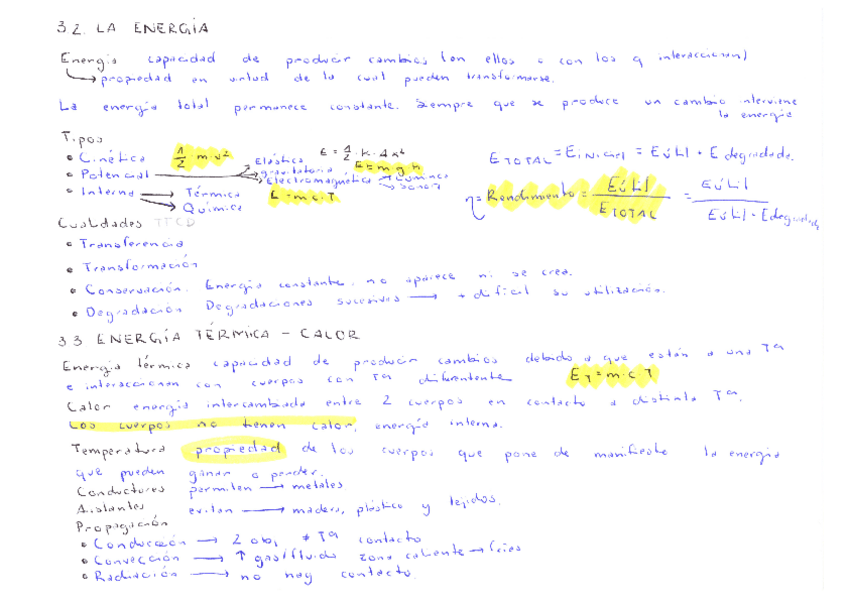 3.2. LA ENERGÍA
Energía capacidad de producir cambios (en ellos o con los q interaccionan)
propiedad en virtud de la cual pueden transformarse.
La energía total permanece constante. Siempre que se produce un cambio interviene la energía
Tipos
• Cinética 1/2 · m · v²
• Potencial → Elástica E = 1/2 · k · Δx²
gravitatoria E = m g h
Electromagnética → Lumínica
→ Sonora
• Interna → Térmica E = m·c·T
→ Química
E TOTAL = E inicial = E útil + E degradada.
η = Rendimiento = E útil / E TOTAL = E útil / E útil + E degradada
Cualidades TTCD
• Transferencia
• Transformación
• Conservación. Energía constante, no aparece ni se crea.
• Degradación Degradaciones sucesivas → + difícil su utilización.
3.3 ENERGÍA TÉRMICA - CALOR
Energía térmica capacidad de producir cambios debido a que están a una Tª
e interaccionan con cuerpos con Tª diferentente E T = m·c·T
Calor energía intercambiada entre 2 cuerpos en contacto a distinta Tª.
Los cuerpos no tienen calor, energía interna.
Temperatura propiedad de los cuerpos que pone de manifiesto la energía
que pueden ganar o perder.
Conductores permiten → metales
Aislantes evitan → madera, plástico y tejidos.
Propagación
• Conducción → 2 obj ≠ Tª contacto
• Convección → ↑ gas/fluido zona caliente → frías
• Radiación → no hay contacto.